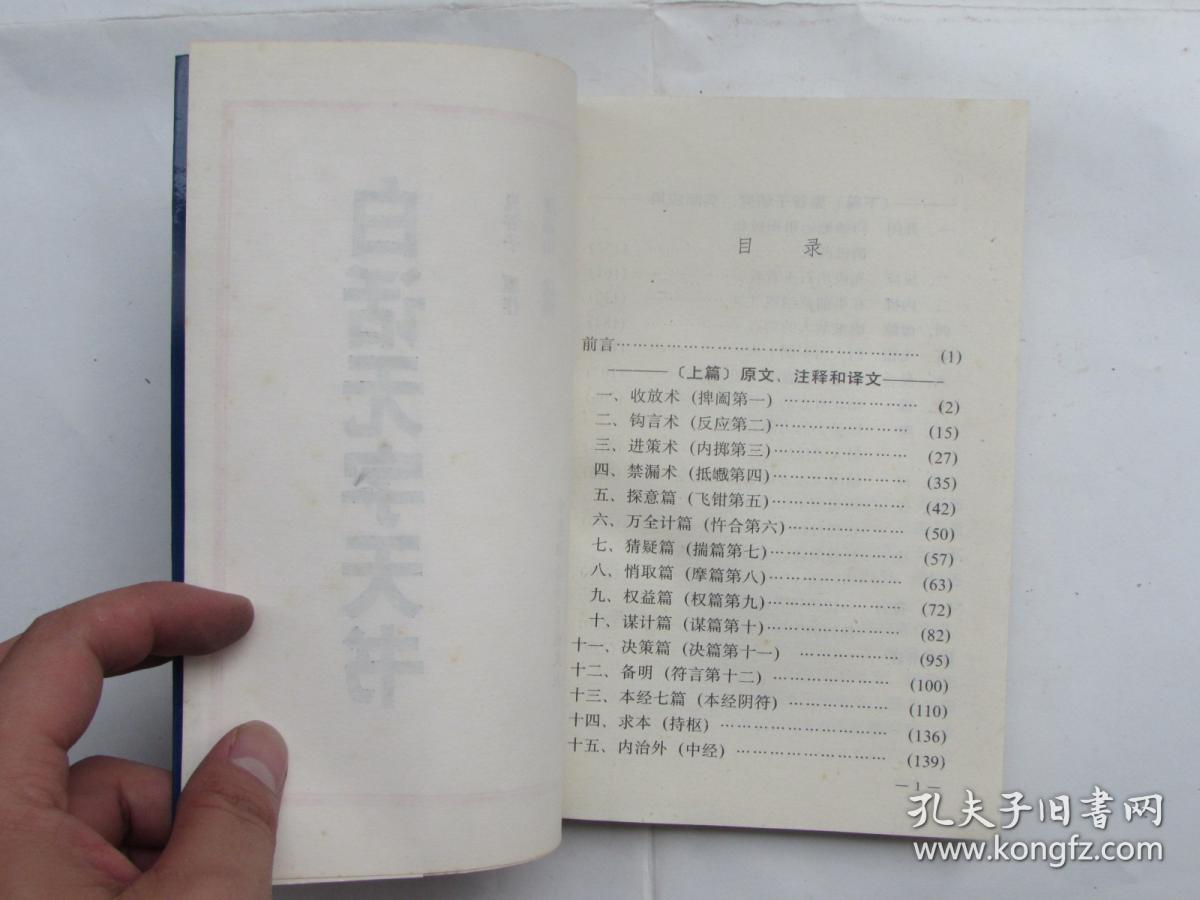 白话无字天书
目 录
前言………………………………………………(1)
———〔上篇〕原文、注释和译文———
一、收放术(捭阖第一)……………………(2)
二、钩言术(反应第二)……………………(15)
三、进策术(内揶第三)……………………(27)
四、禁漏术(抵巇第四)……………………(35)
五、探意篇(飞钳第五)……………………(42)
六、万全计篇(忤合第六)…………………(50)
七、猜疑篇(揣篇第七)……………………(57)
八、悄取篇(摩篇第八)……………………(63)
九、权益篇(权篇第九)……………………(72)
十、谋计篇(谋篇第十)……………………(82)
十一、决策篇(决篇第十一)………………(95)
十二、备明(符言第十二)…………………(100)
十三、本经七篇(本经阴符)………………(110)
十四、求本(持枢)…………………………(136)
十五、内治外(中经)………………………(139)
— 1 —
孔夫子旧书网
www.kongfz.com